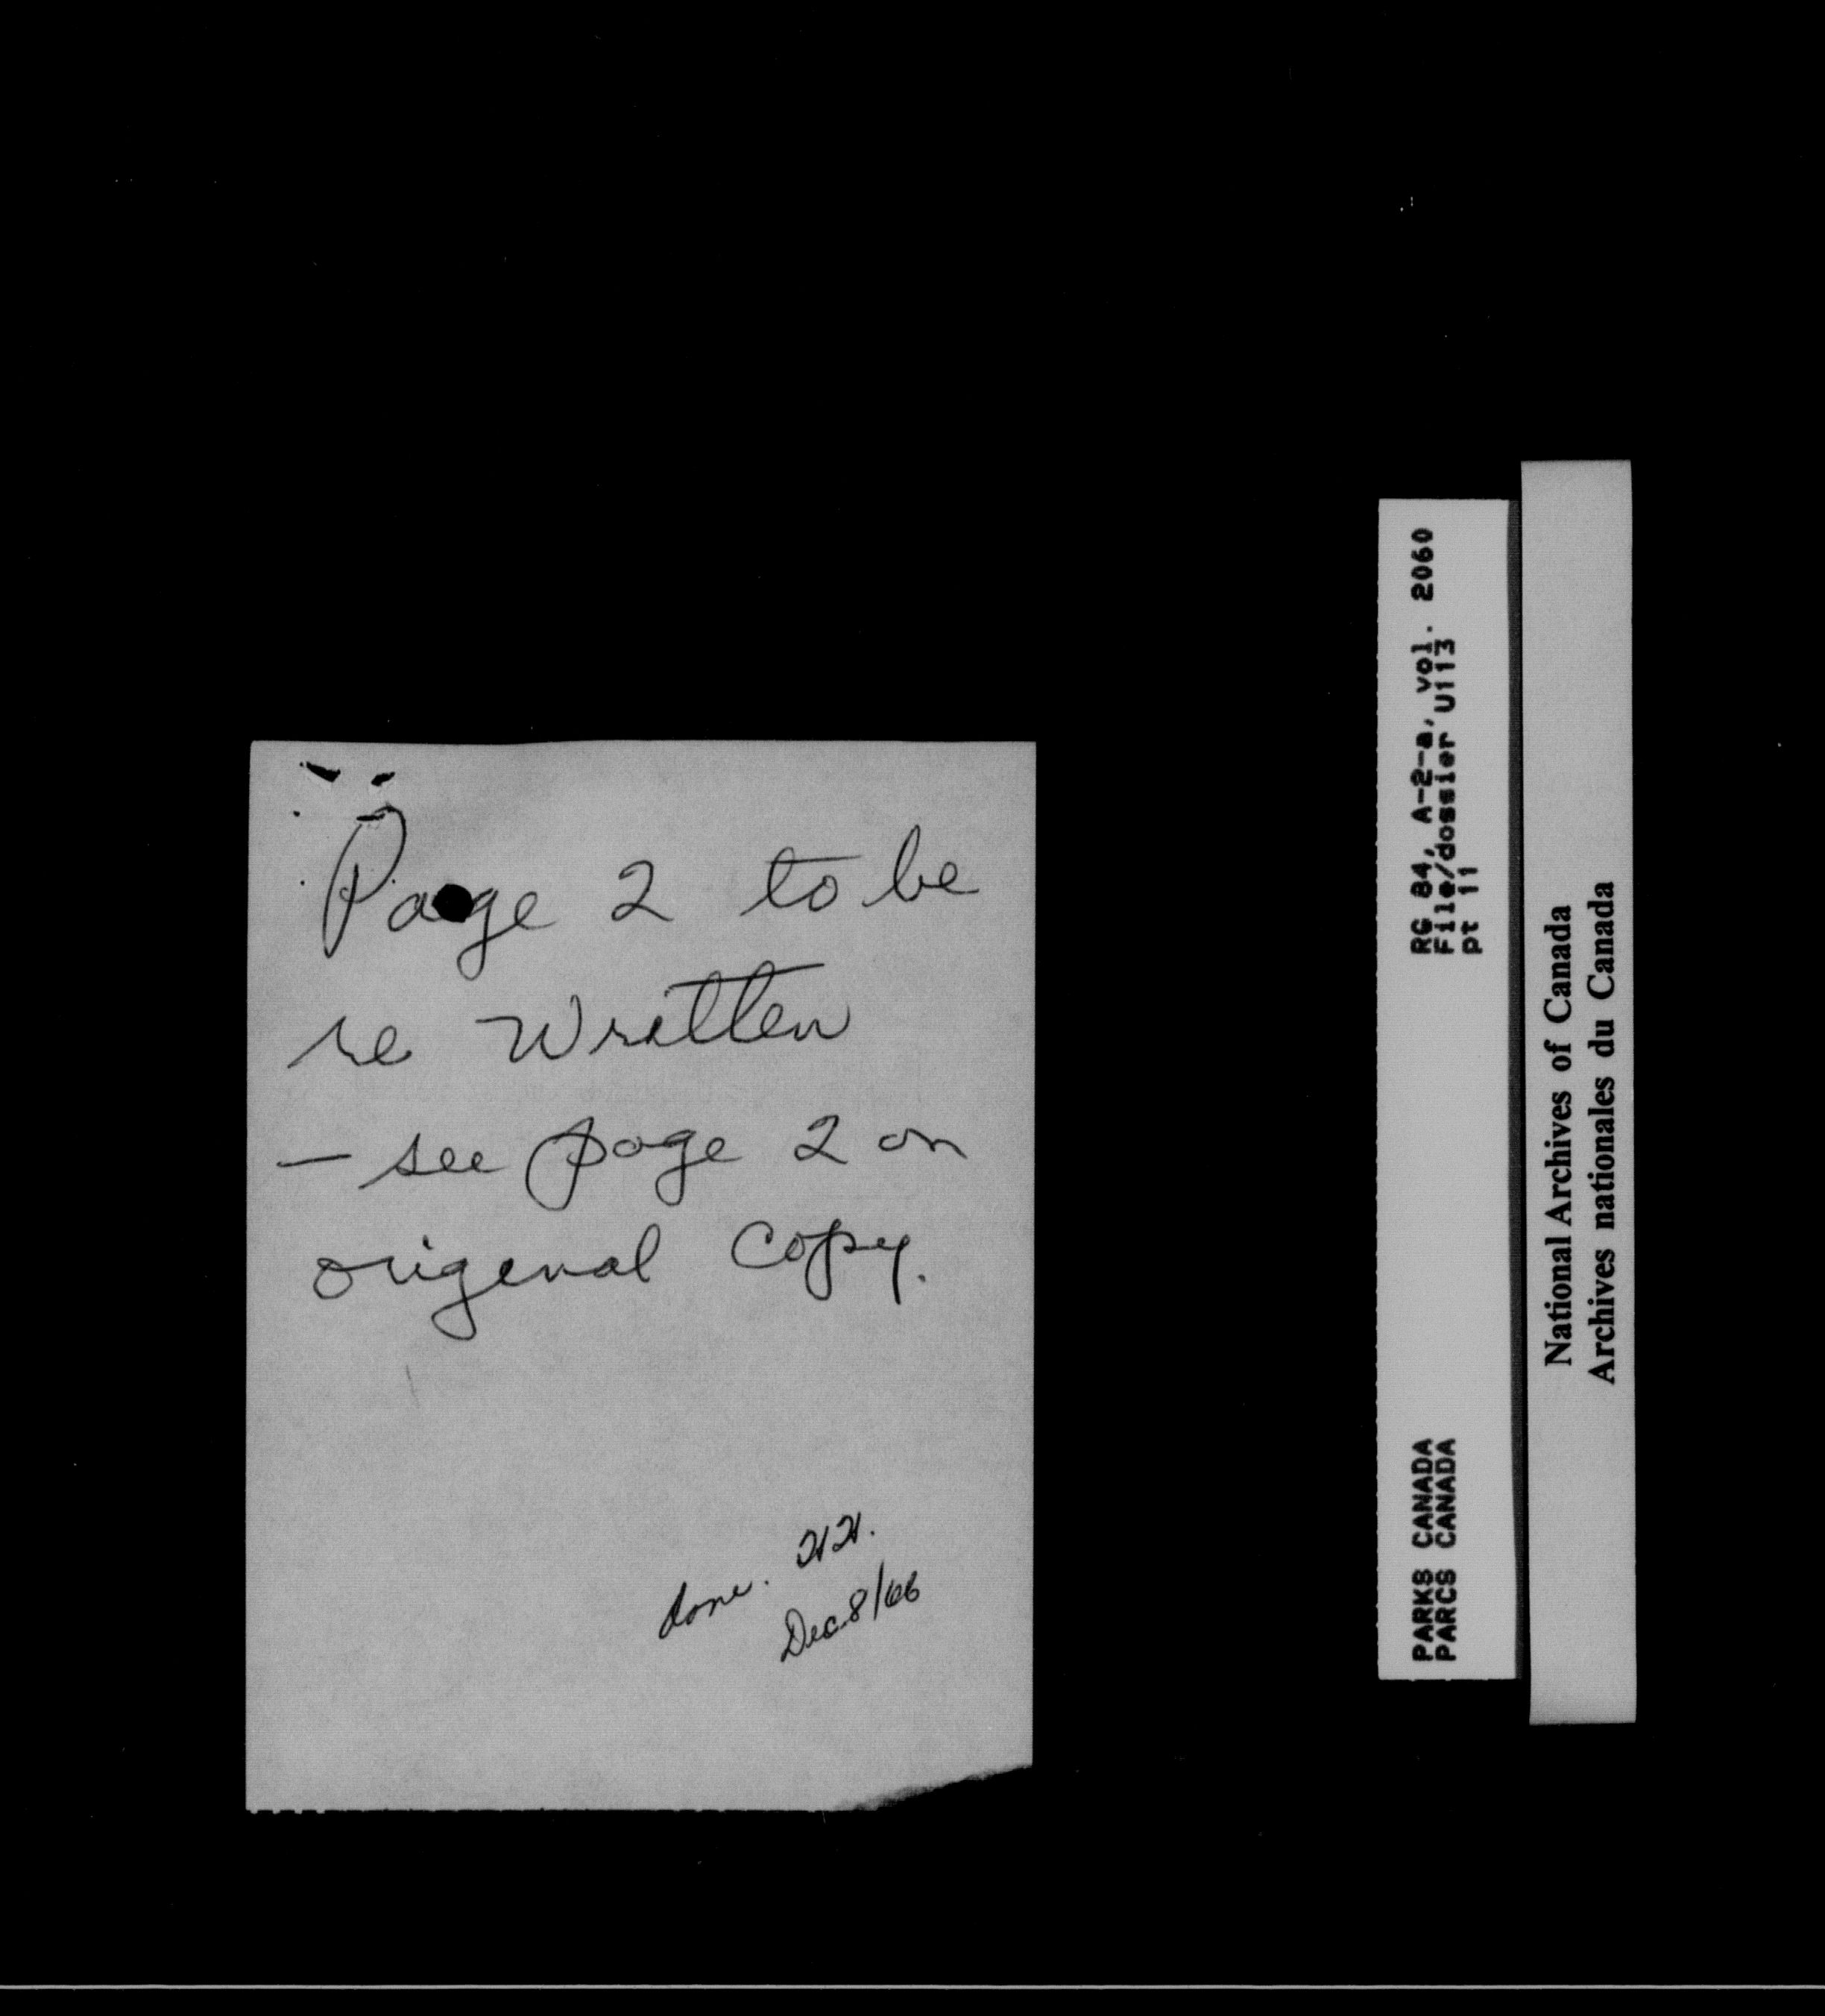 Page 2 to be
re Written
— see page 2 on
original Copy.
done.
Dec. 8/66
RG 84, A-2-a, vol. 2060
File/dossier U113
pt 11
PARKS CANADA
PARCS CANADA
National Archives of Canada
Archives nationales du Canada